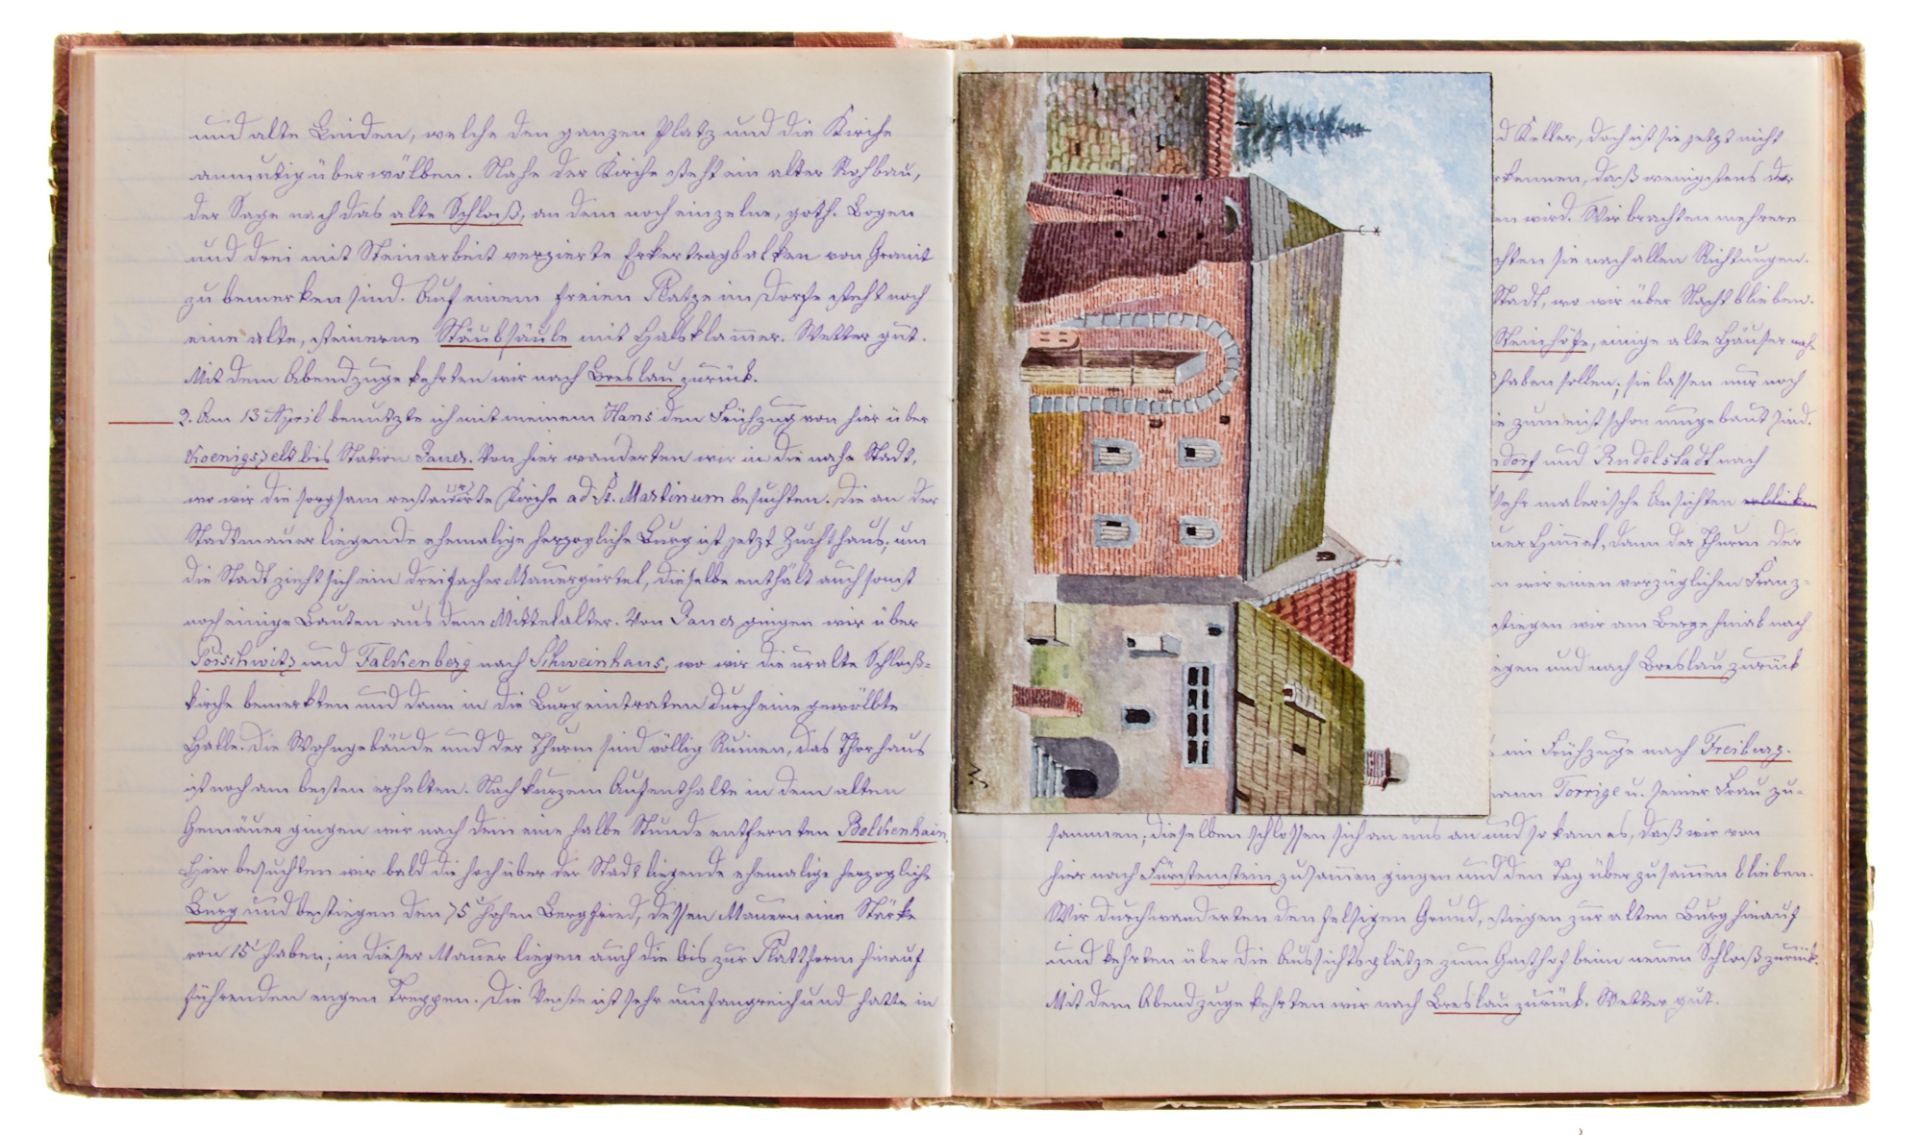 und alte Linden, welche den ganzen Platz und die Kirche
anmutig überwölben. Nahe der Kirche steht ein alter Rohbau,
der Sage nach das alte Schloß, an dem noch einzelne, goth. Bogen
und drei mit Steinarbeit verzierte Erkertragbalken von Granit
zu bemerken sind. Auf einem freien Platze im Dorfe steht noch
eine alte, steinerne Stäubsäule mit Halsklam̄er. Wetter gut.
Mit dem Abendzuge kehrten wir nach Breslau zurück.
2. Am 13 April benutzte ich mit meinem Hans den Frühzug von hier über
Koenigszelt bis Station Jauer. Von hier wanderten wir in die nahe Stadt,
wo wir die sorgsam restaurirte Kirche ad St. Martinum besuchten. Die an der
Stadtmauer liegende ehemalige herzogliche Burg ist jetzt Zuchthaus; um
die Stadt zieht sich ein dreifacher Mauergürtel, dieselbe enthält auch sonst
noch einige Bauten aus dem Mittelalter. Von Jauer gingen wir über
Poischwitz und Falkenberg nach Schweinhaus, wo wir die uralte Schloß=
kirche bemerkten und dann in die Burg eintraten durch eine gewölbte
Halle. Die Wohngebäude und der Thurm sind völlig Ruinen, das Thorhaus
ist noch am besten erhalten. Nach kurzem Aufenthalte in dem alten
Gemäuer gingen wir nach dem eine halbe Stunde entfernten Bolkenhain.
Hier besuchten wir bald die hoch über der Stadt liegende ehemalige herzogliche
Burg und bestiegen den 75' hohen Bergfried, dessen Mauern eine Stärke
von 15' haben; in dieser Mauer liegen auch die bis zur Plattform hinauf
führenden engen Treppen. Die Veste ist sehr umfangreich und hatte in
d Keller, doch ist sie jetzt nicht
rkennen, daß wenigstens der
en wird. Wir brachten mehrere
chten sie nach allen Richtungen.
Stadt, wo wir über Nacht blieben.
Steinhöfe, einige alte Häuser nahe
haben sollen; sie lassen nur noch
ie zumeist schon umgebaut sind.
ndorf und Rudelstadt nach
sehr malerische Ansichten erblicken
uer Himmel, dann der Thurm der
n wir einen vorzüglichen Franz-
stiegen wir am Berge hinab nach
iegen und nach Breslau zurück
im Frühzuge nach Freiburg.
mann Torrige u. seiner Frau zu-
sammen; dieselben schlossen sich an uns an und so kam es, daß wir von
hier nach Fürstenstein zusam̄en gingen und den Tag über zusam̄en blieben.
Wir durchwanderten den felsigen Grund, stiegen zur alten Burg hinauf
und kehrten über die Aussichtsplätze zum Gasthof beim neuen Schloß zurück.
Mit dem Abendzuge kehrten wir nach Breslau zurück. Wetter gut.